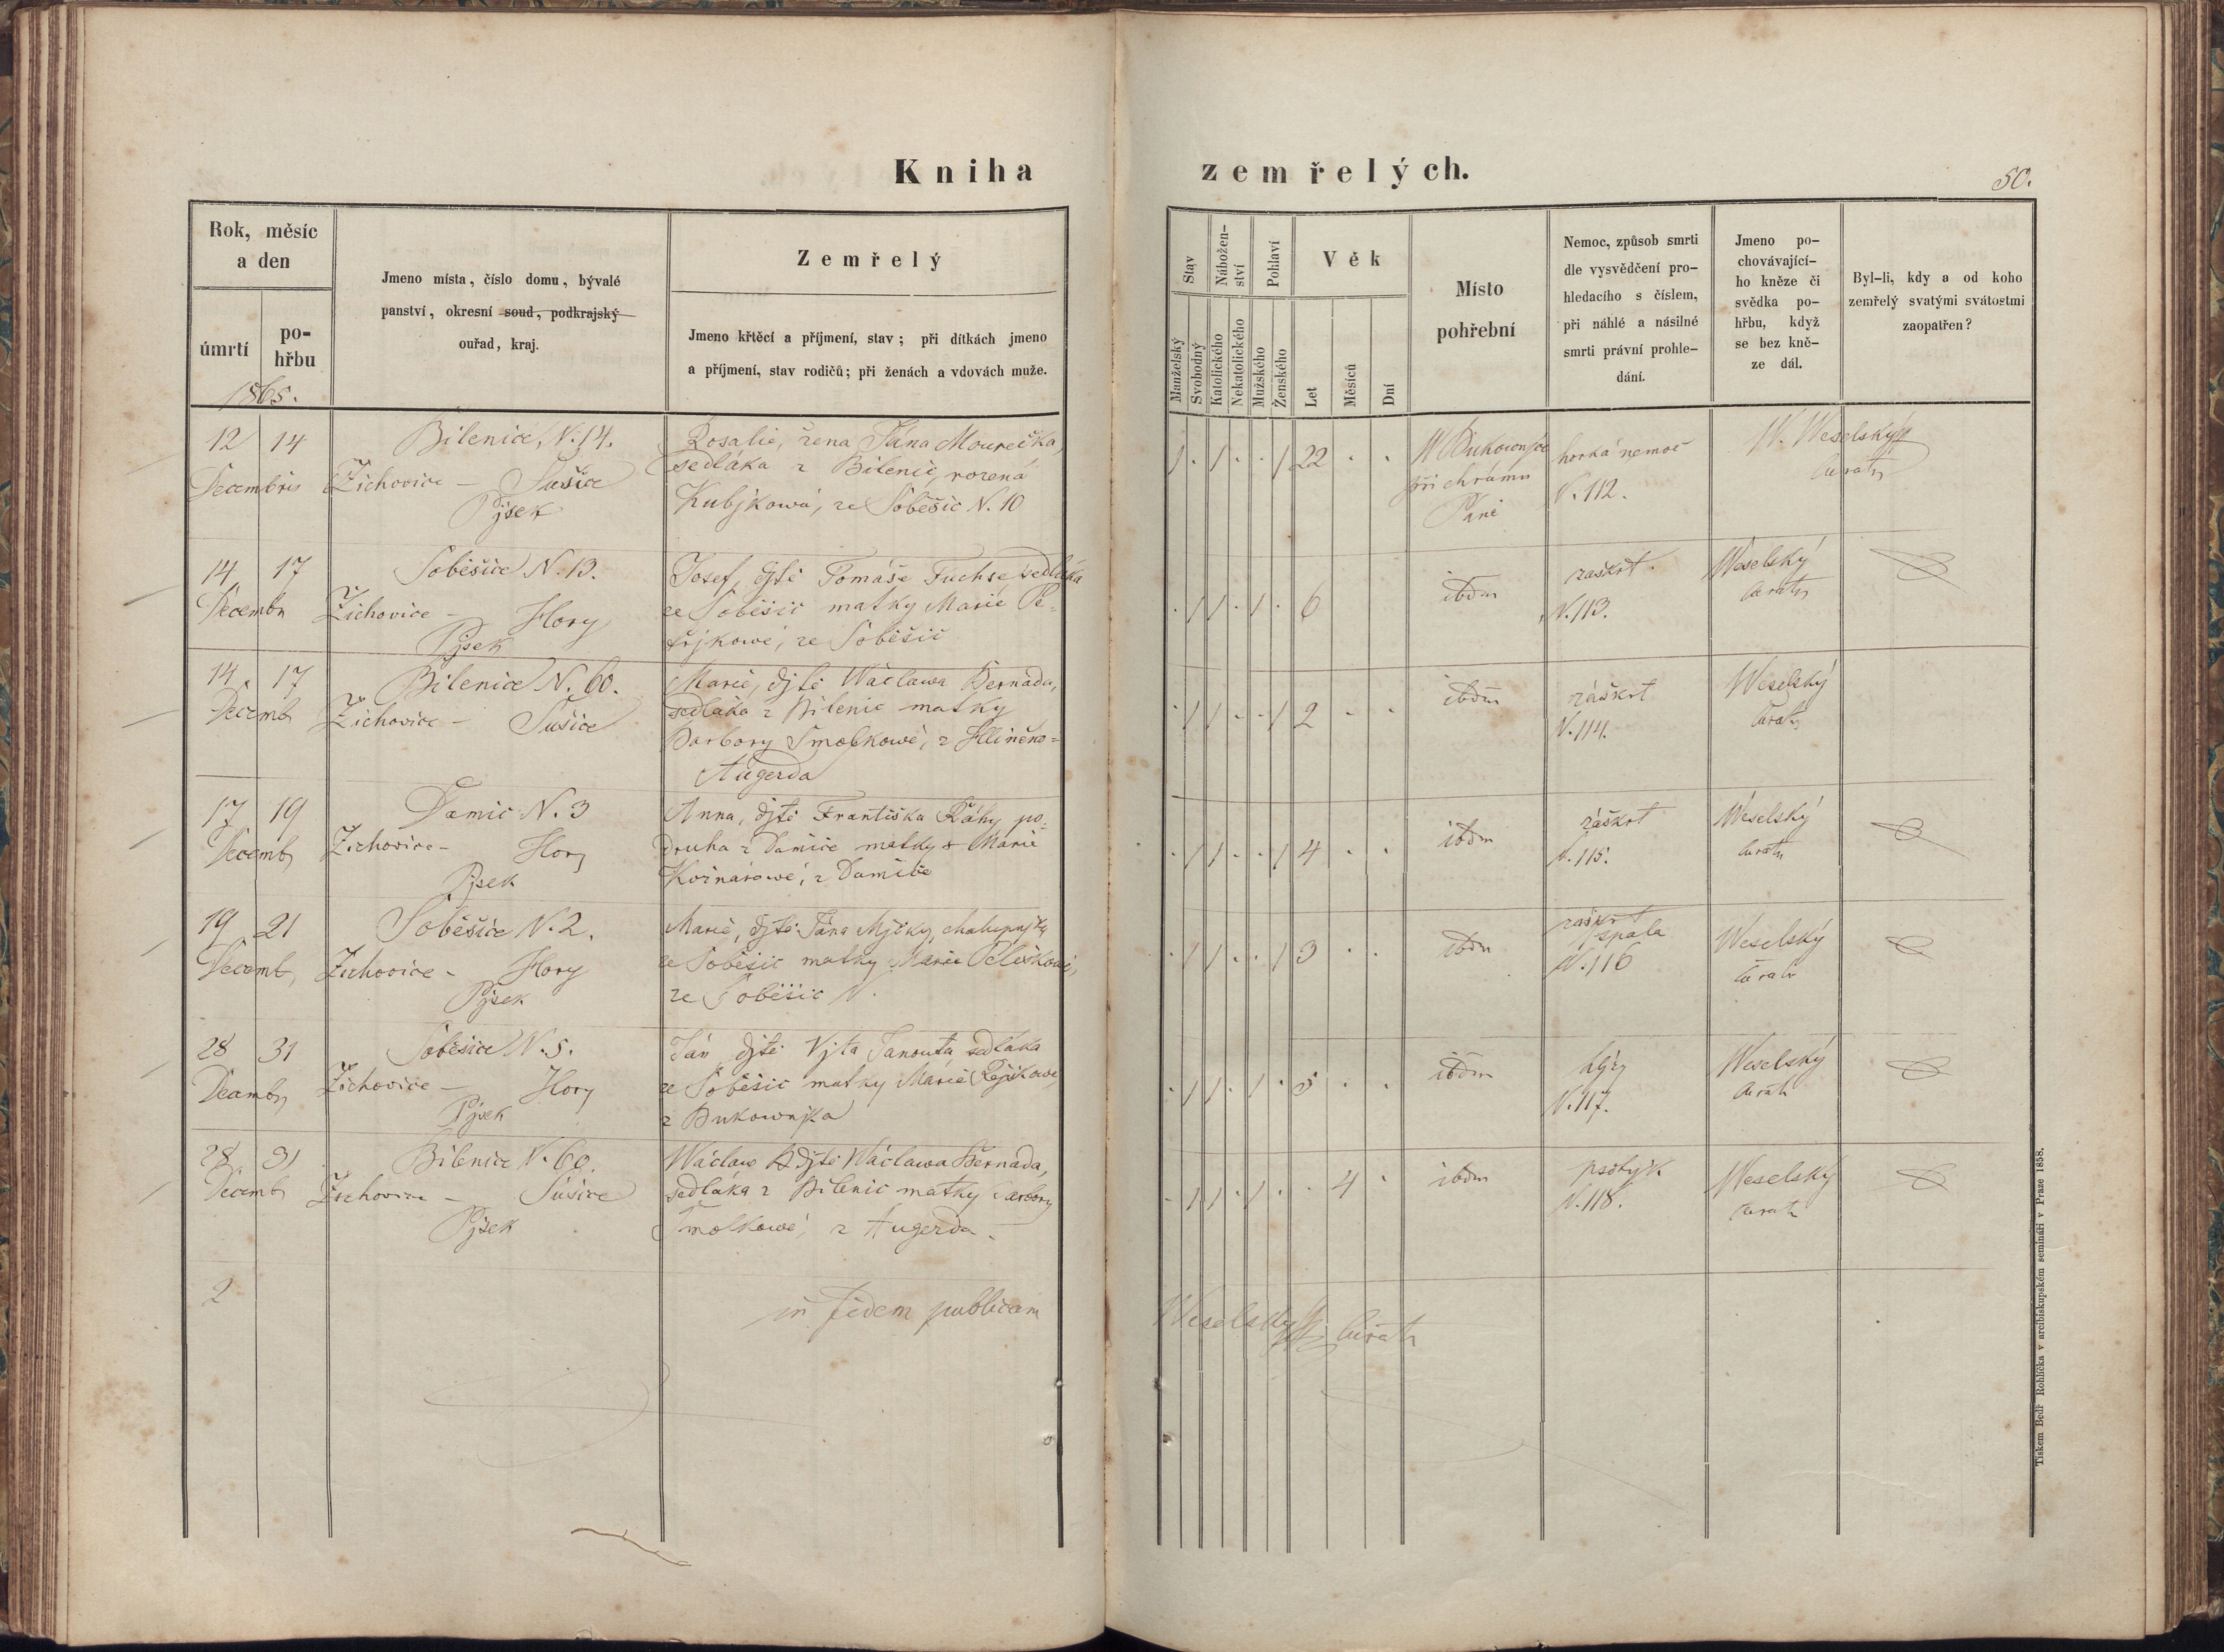 Kniha zemřelých.
50.
Rok, měsíc
a den
úmrtí
po-
hřbu
1865.
Jmeno místa, číslo domu, bývalé
panství, okresní soud, podkrajský
ouřad, kraj.
Zemřelý
Jmeno křtěcí a příjmení, stav; při dítkách jmeno
a příjmení, stav rodičů; při ženách a vdovách muže.
Stav
Manželský
Svobodný
Nábožen-
ství
Katolického
Nekatolického
Pohlaví
Mužského
Ženského
Věk
Let
Měsíců
Dní
Místo
pohřební
Nemoc, způsob smrti
dle vysvědčení pro-
hledacího s číslem,
při náhlé a násilné
smrti právní prohle-
dání.
Jmeno po-
chovávající-
ho kněze či
svědka po-
hřbu, když
se bez kně-
ze dál.
Byl-li, kdy a od koho
zemřelý svatými svátostmi
zaopatřen?
12 14 Bilenice, N. 14. Rosalie, žena Jána Mourečka,
Decembris Žichovice – Sušice sedláka z Bilenic, rozená
Pjsek Kubjkowá, ze Soběšic N. 10
1 · 1 · · 1 22 · ·
při chrámu
Páně
horká nemoc
N. 112.
W. Weselský
Curatr
14 17 Soběšice N. 13. Josef, djtě Tomáše Fuchse sedláka
Decembr Žichovice – Hory ze Soběšic matky Marie Pe-
Pjsek ze Soběšic
· 1 1 · 1 · 6
ibdm
zaškrt
N. 113.
Weselský
Curatr
14. 17 Bilenice N. 60. Marie, djtě Wáclawa Bernada,
Decemb Žichovice – Sušice sedláka z Bilenic matky
Barbory Smolkowé, z Hliněno-
Augezda
· 1 1 · · 1 2 · ·
ibdm
záškrt
N. 114.
Weselský
Curatr
17 19 Damic N. 3 Anna, djtě Františka Ráhy po-
Decemb Žichovice – Hory druha z Damice matky Marie
Pjsek z Damice
· 1 1 · · 1 4 · ·
ibdm
záškrt
N. 115.
Weselský
Curatr
19 21 Soběšice N. 2. Marie, djtě Jána
Decemb Žichovice – Hory ze Soběšic matky Marie
Pjsek ze Soběšic N.
· 1 1 · · 1 3 · ·
ibdm
zaškrt
spala
N. 116
Weselský
Curatr
28 31 Soběšice N. 5. Ján, djtě Vjta Janouta, sedláka
Decembr Žichovice – Hory ze Soběšic matky Marie
Pjsek z Bukownjka
· 1 1 · 1 · 5 · ·
ibdm
N. 117.
Weselský
Curatr
28 31 Bilenice N. 60. Wáclaw djtě Wáclawa Bernada,
Decemb Žichovice – Sušice sedláka z Bilenic matky Barbory
Pjsek Smolkowé, z Augezda.
· 1 1 · 1 · · 4 ·
ibdm
psotnjk
N. 118.
Weselský
Curatr
2
in fidem publicam
Weselský Curatr
Tiskem Bedř Rohlíčka v arcibiskupském semináři v Praze 1858.